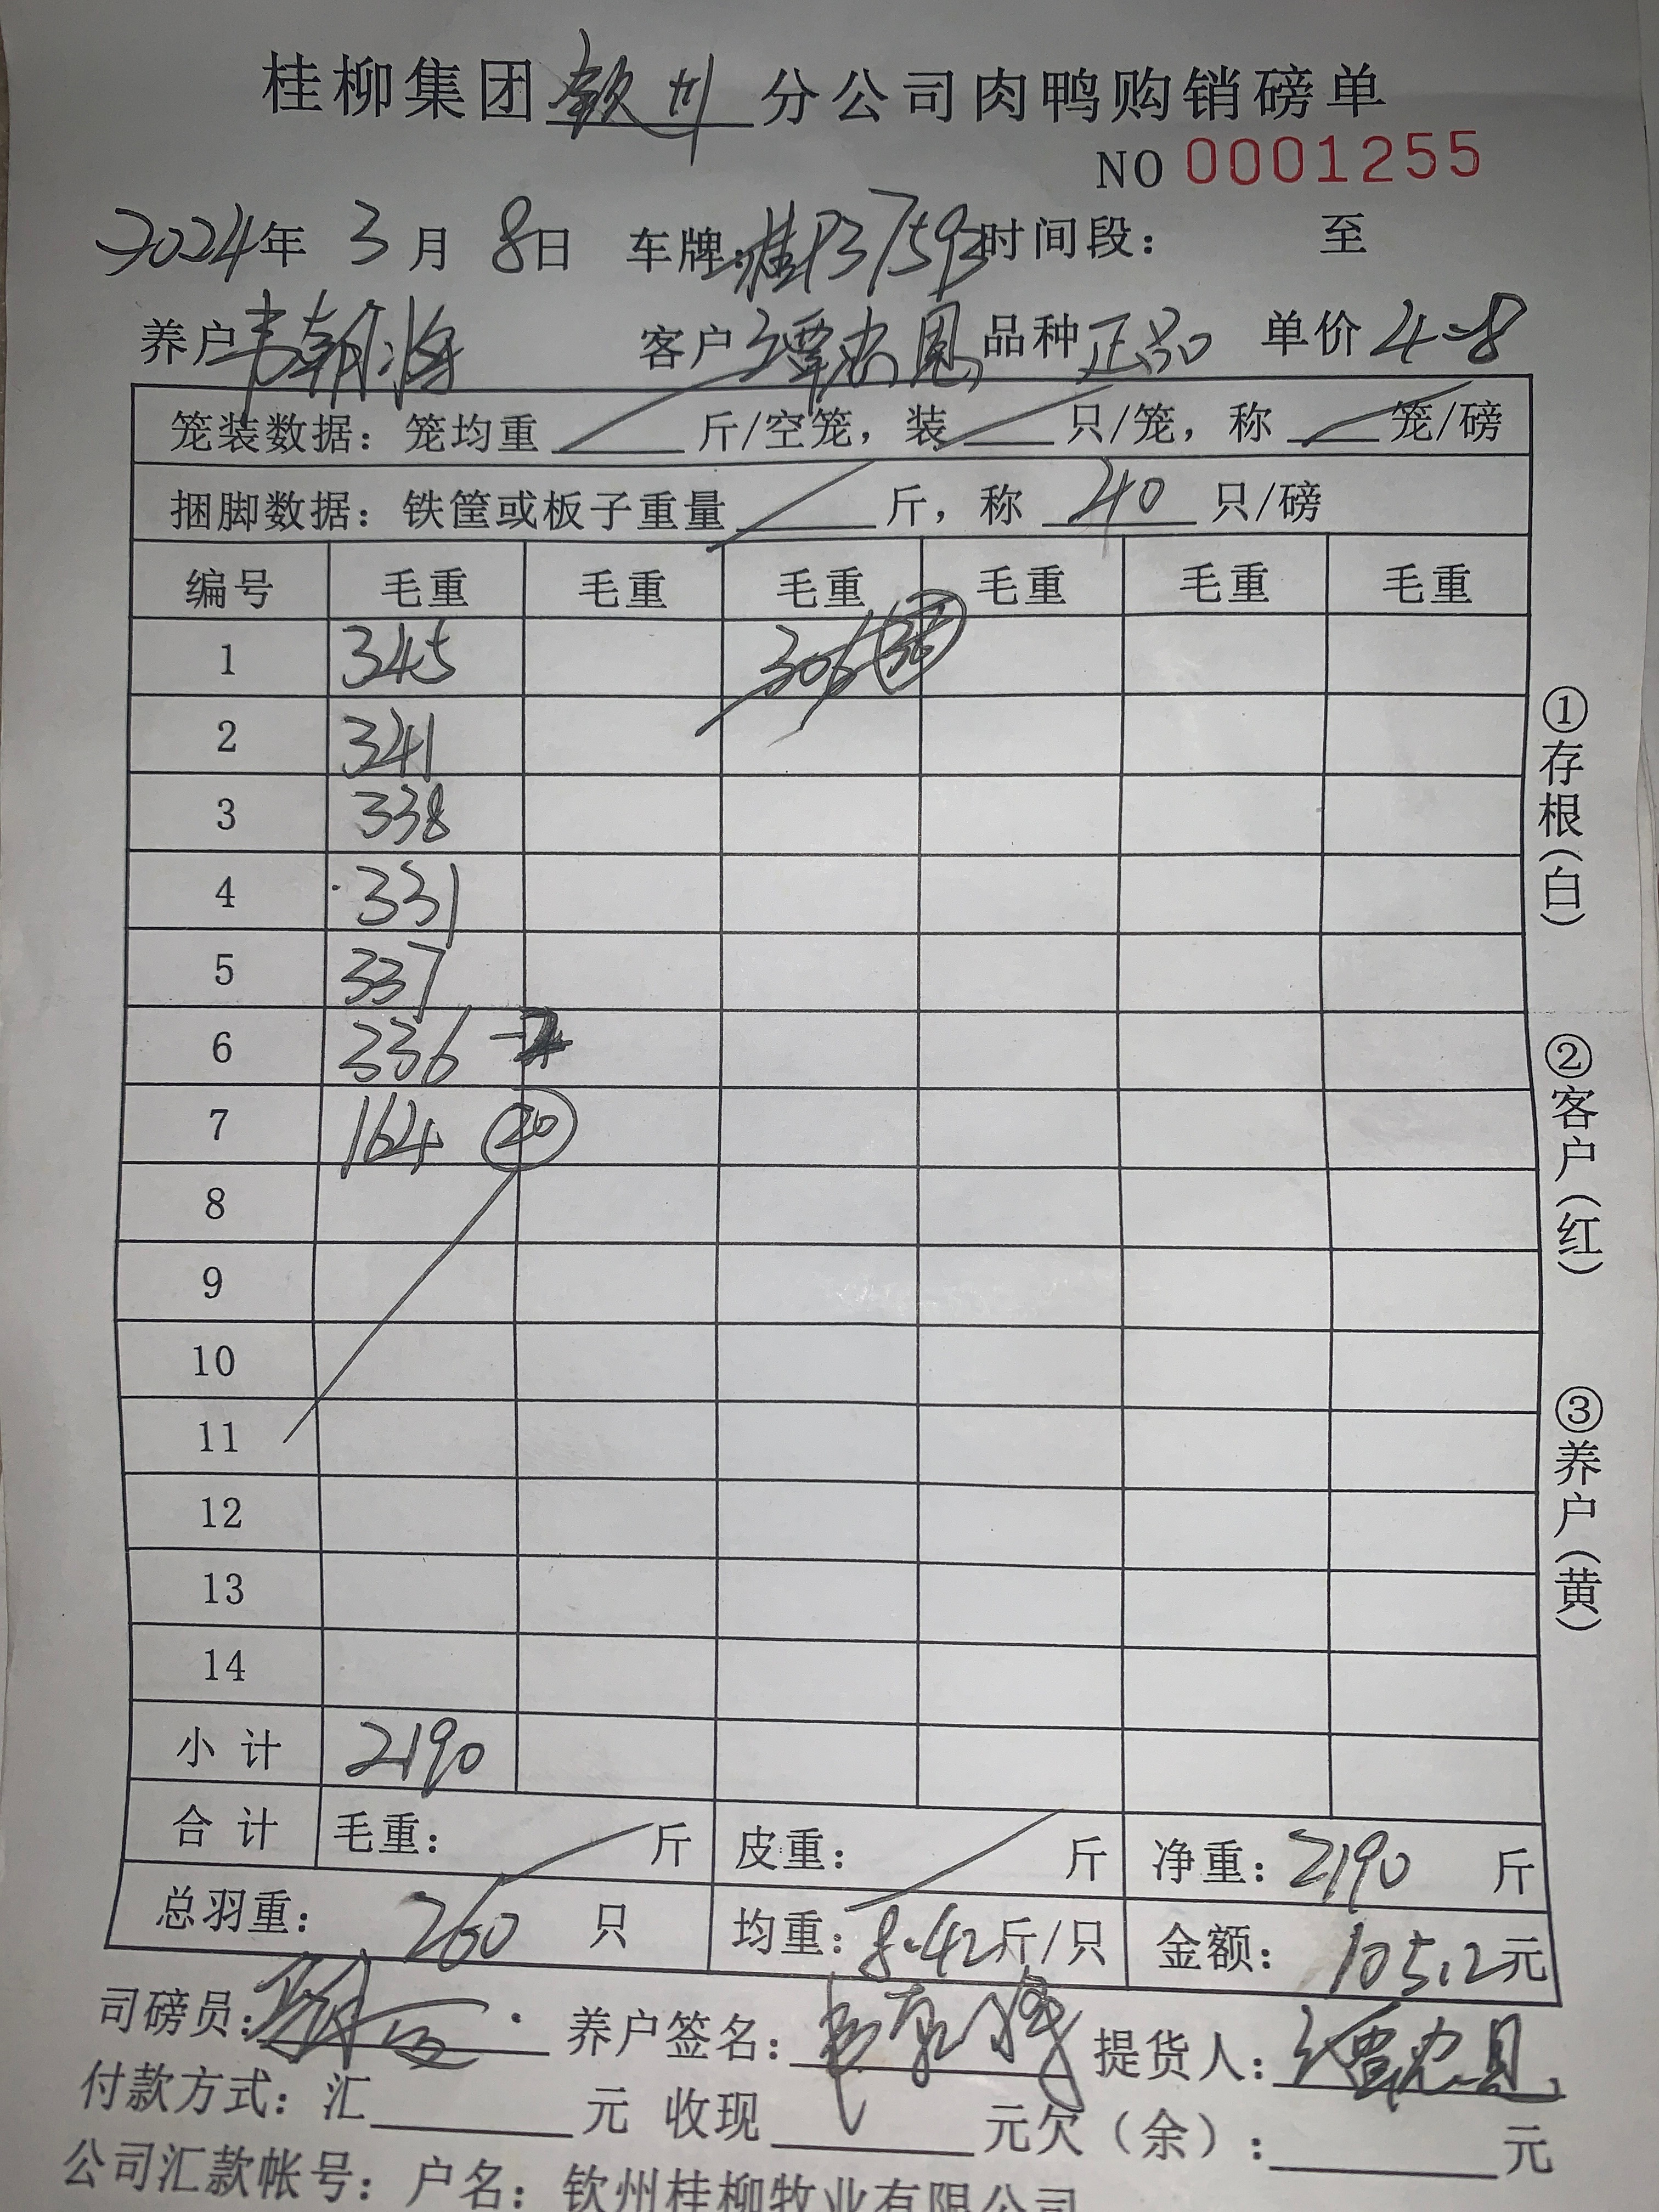 桂柳集团钦州分公司肉鸭购销磅单
NO 0001255
2024年 3月 8日 车牌:桂P3759 时间段: 至
养户韦朝海 客户谭忠恩 品种正品 单价4-8
笼装数据:笼均重 斤/空笼,装 只/笼,称 笼/磅
捆脚数据:铁筐或板子重量 斤,称 40 只/磅
编号 毛重 毛重 毛重 毛重 毛重 毛重
1 345 306
2 341
3 338
4 331
5 337
6 336
7 164 20
8
9
10
11
12
13
14
小计 2190
合计 毛重: 斤 皮重: 斤 净重:2190 斤
总羽重: 260 只 均重:8.42斤/只 金额: 10512元
司磅员: 养户签名: 提货人:谭忠恩
付款方式:汇 元 收现 元欠(余): 元
公司汇款帐号:户名:钦州桂柳牧业有限公司
①存根(白)
②客户(红)
③养户(黄)